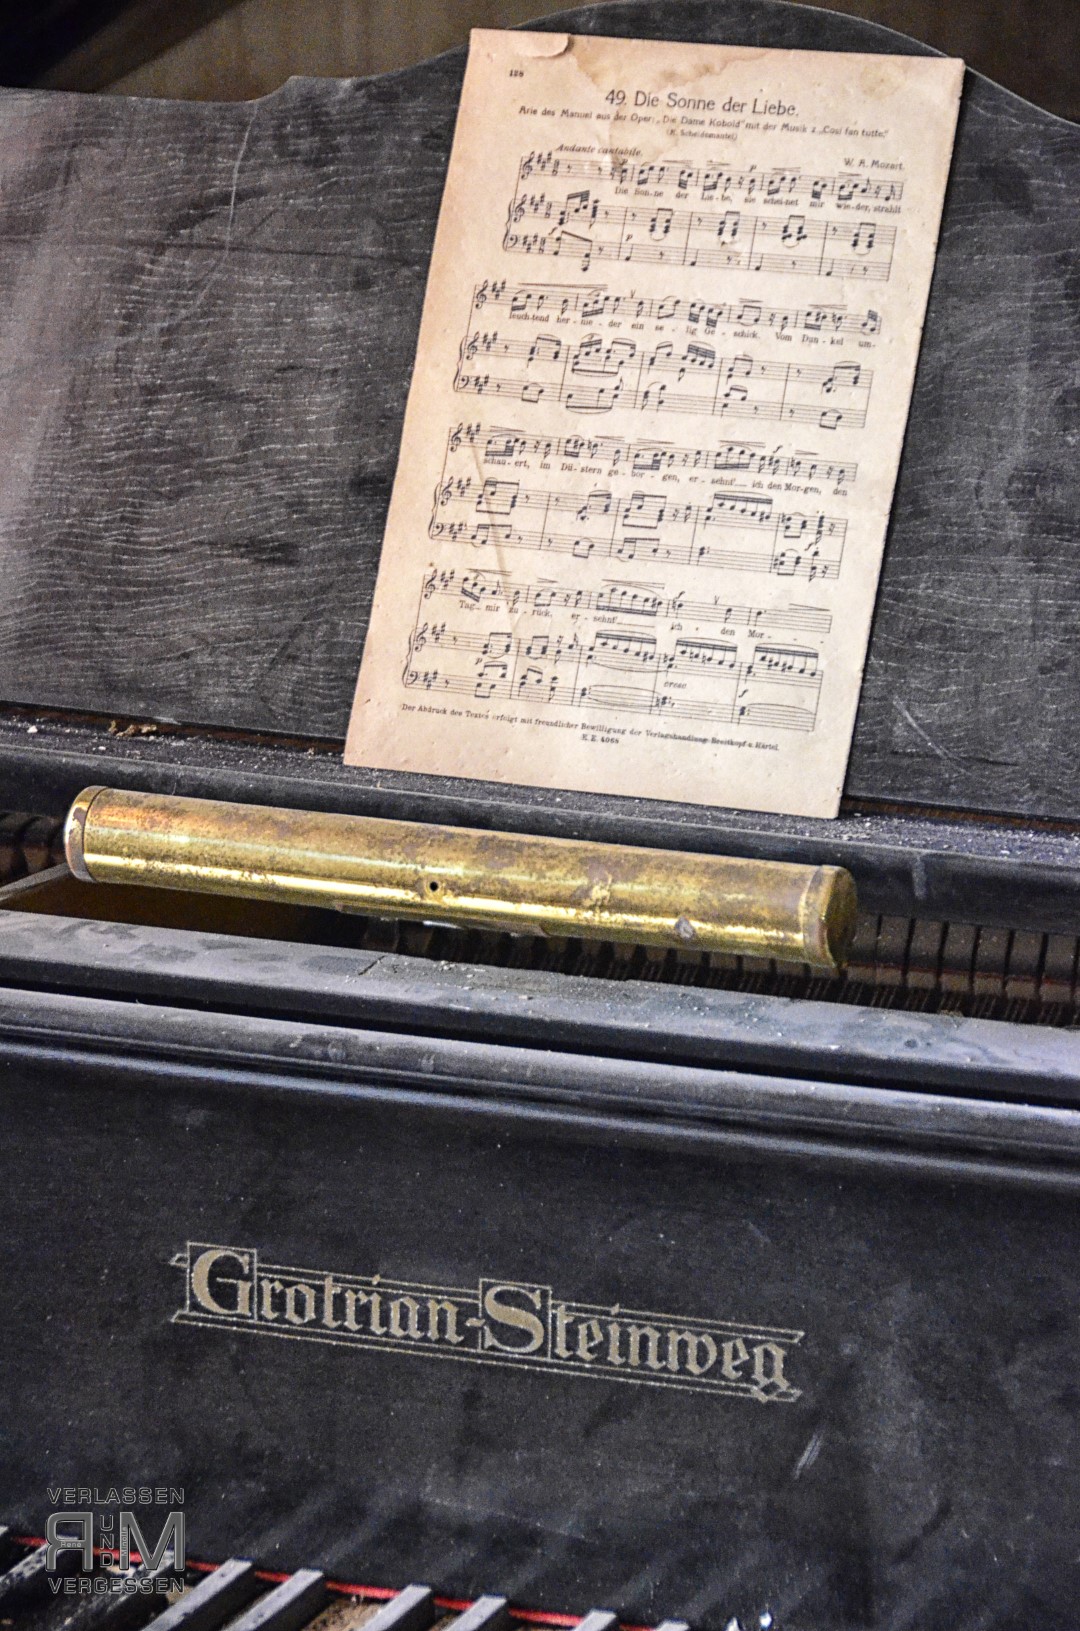 158
49. Die Sonne der Liebe.
Arie des Manuel aus der Oper: „Die Dame Kobold" mit der Musik z „Cosi fan tutte."
(K. Scheidemantel)
Andante cantabile.
W. A. Mozart.
Die Son-ne der Lie-be, sie schei-net mir wie-der, strahlt
leuch-tend her-nie-der ein se-lig Ge-schick. Vom Dun-kel um-
schau-ert, im Dü-stern ge-bor-gen, er-sehnt' ich den Mor-gen, den
Tag mir zu-rück, er-sehnt' ich den Mor-
cresc.
Der Abdruck des Textes erfolgt mit freundlicher Bewilligung der Verlagshandlung Breitkopf u. Härtel.
Grotrian-Steinweg
VERLASSEN
R UND M
René
VERGESSEN